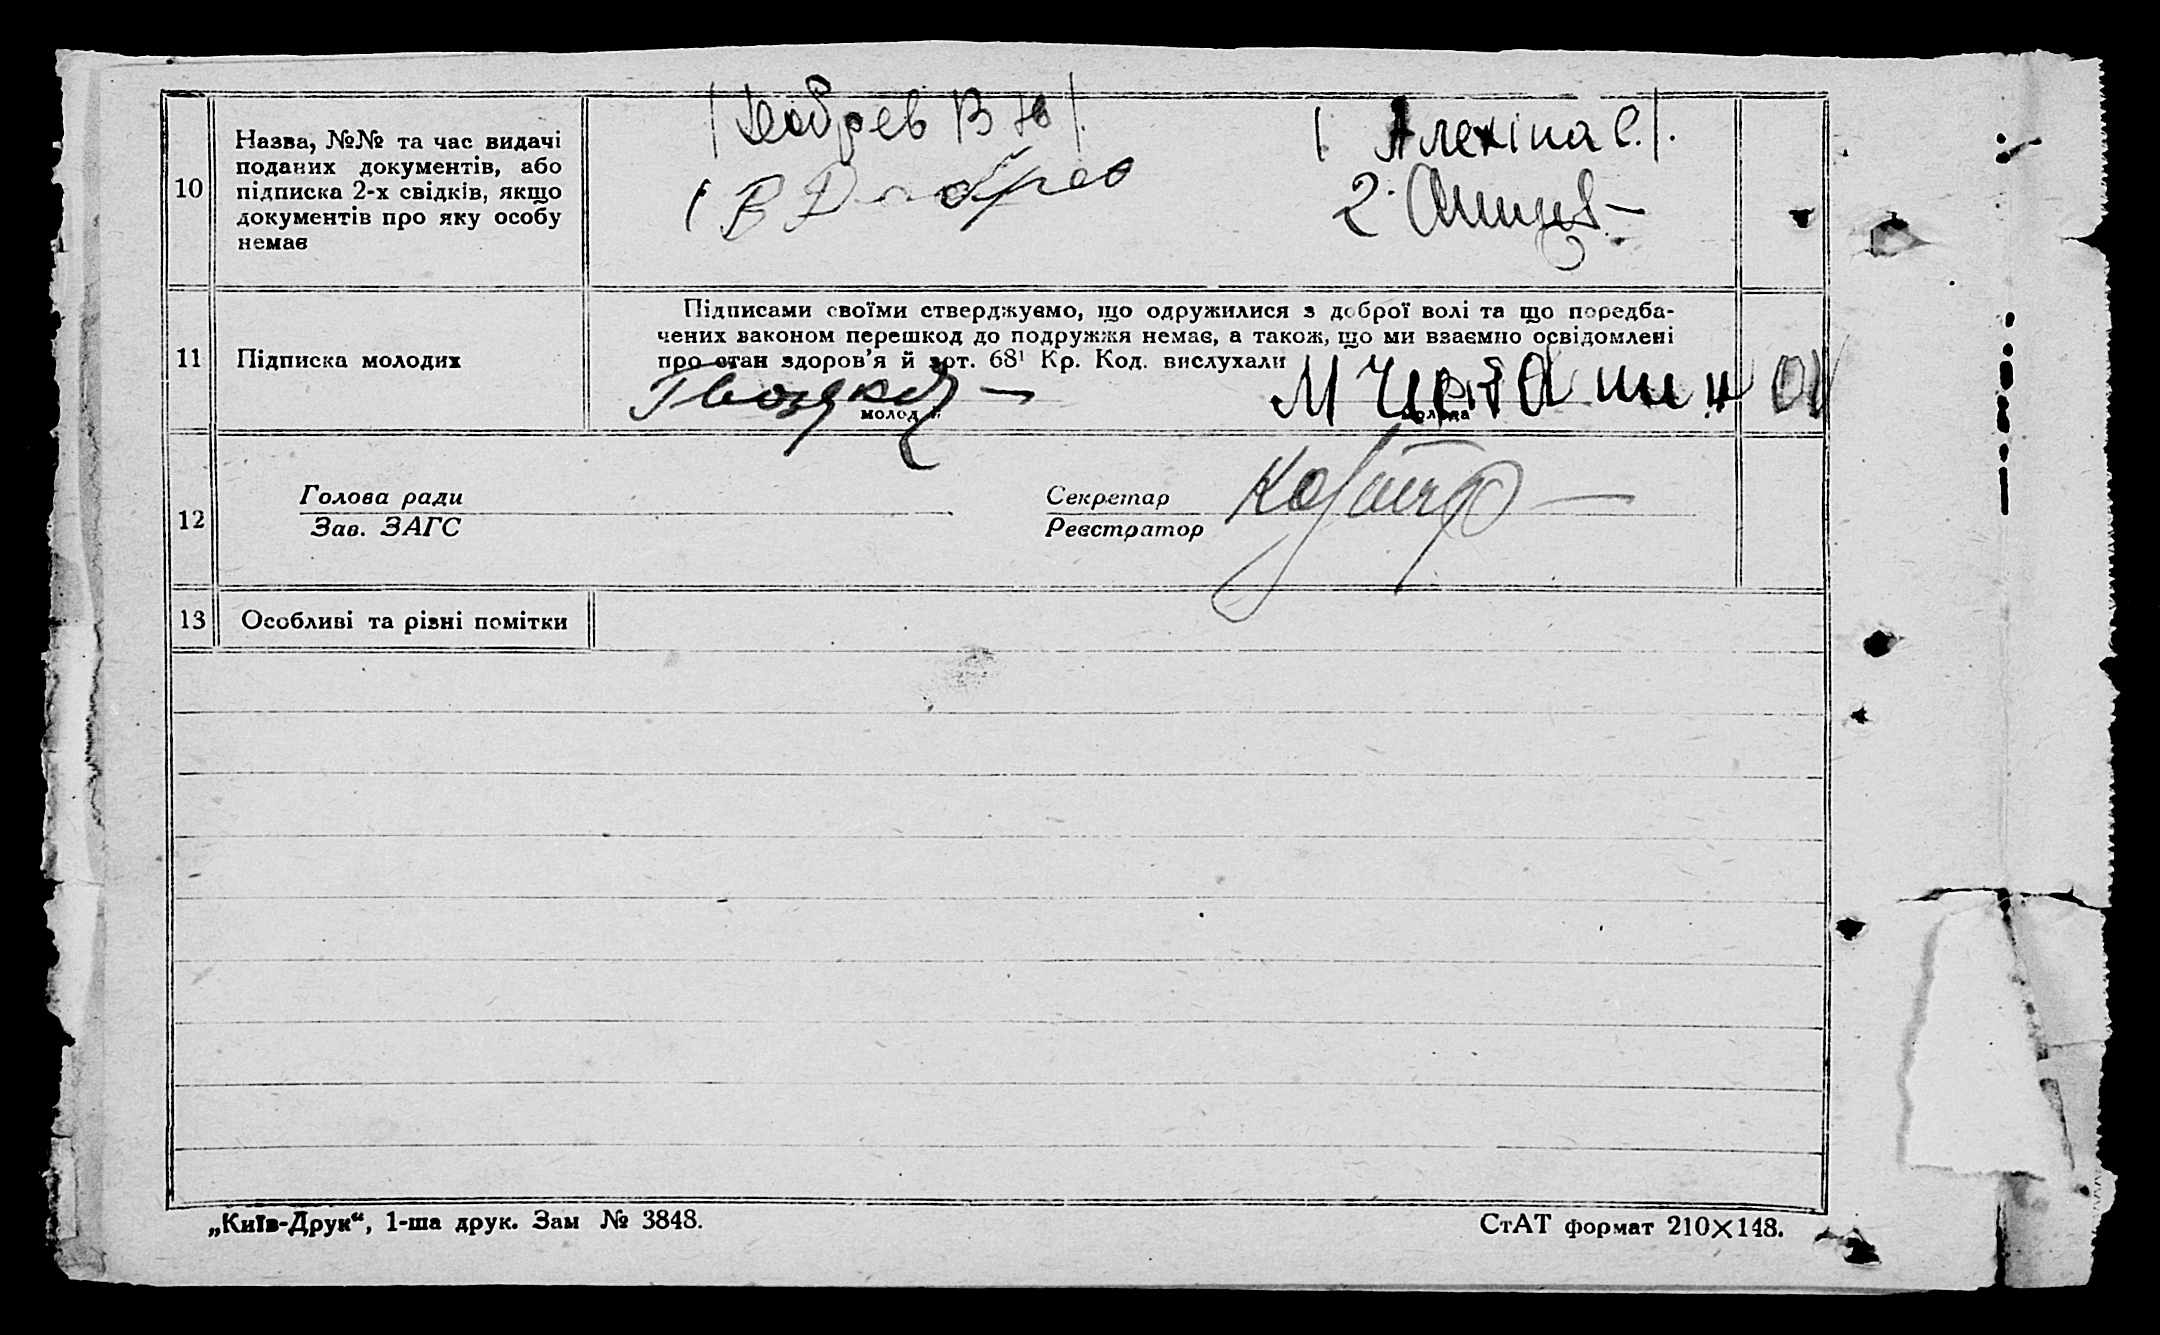 10
Назва, №№ та час видачі
поданих документів, або
підписка 2-х свідків, якщо
документів про яку особу
немає
В Ю
/. Алехіна Є./.
1 В
2.
11
Підписка молодих
Підписами своїми стверджуємо, що одружилися з доброї волі та що передба-
чених законом перешкод до подружжя немає, а також, що ми взаємно освідомлені
про стан здоров'я й арт. 68¹ Кр. Код. вислухали
молодий
молода
12
Голова ради
Зав. ЗАГС
Секретар
Реєстратор
13
Особливі та різні помітки
„Київ-Друк“, 1-ша друк. Зам № 3848.
СтАТ формат 210×148.